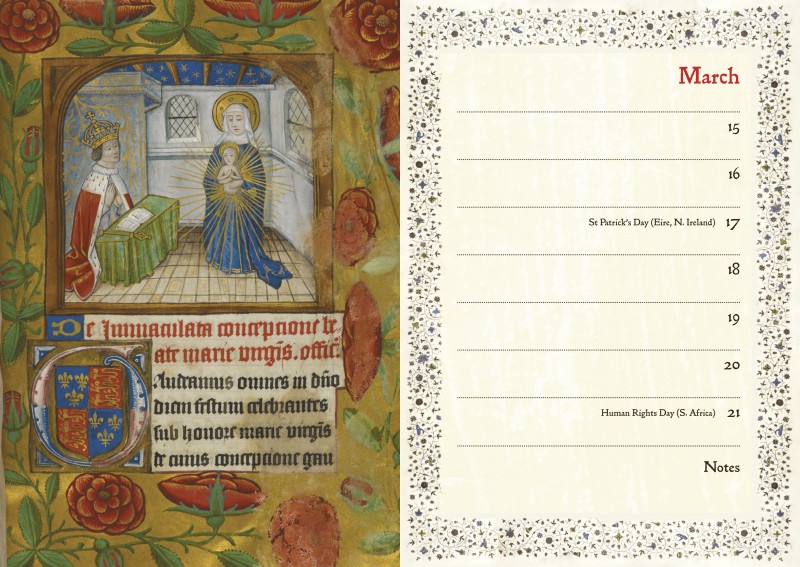 De Immaculata concepcione be
ate marie virgis. offic.
Gaudeamus omnes in dño
diem festum celebrantes
sub honore marie virgis
de cuius concepcione gau
March
15
16
St Patrick's Day (Eire, N. Ireland) 17
18
19
20
Human Rights Day (S. Africa) 21
Notes